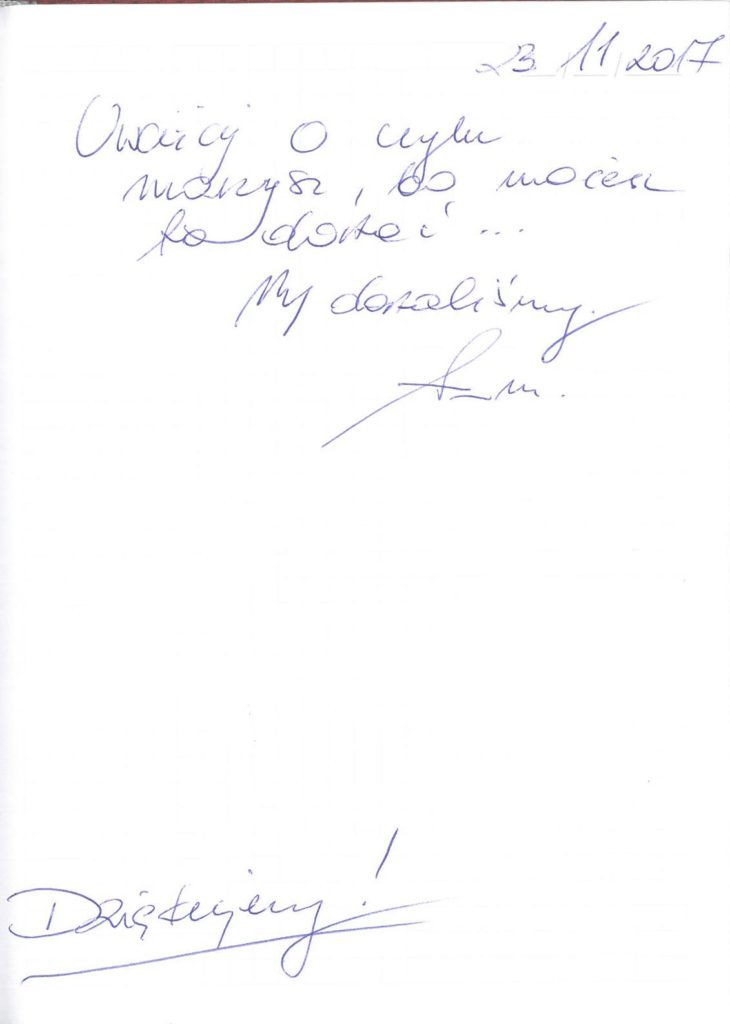 23.11.2017
Uważaj o czym
marzysz, bo możesz
to dostać ...
My dostaliśmy.
Dziękujemy!